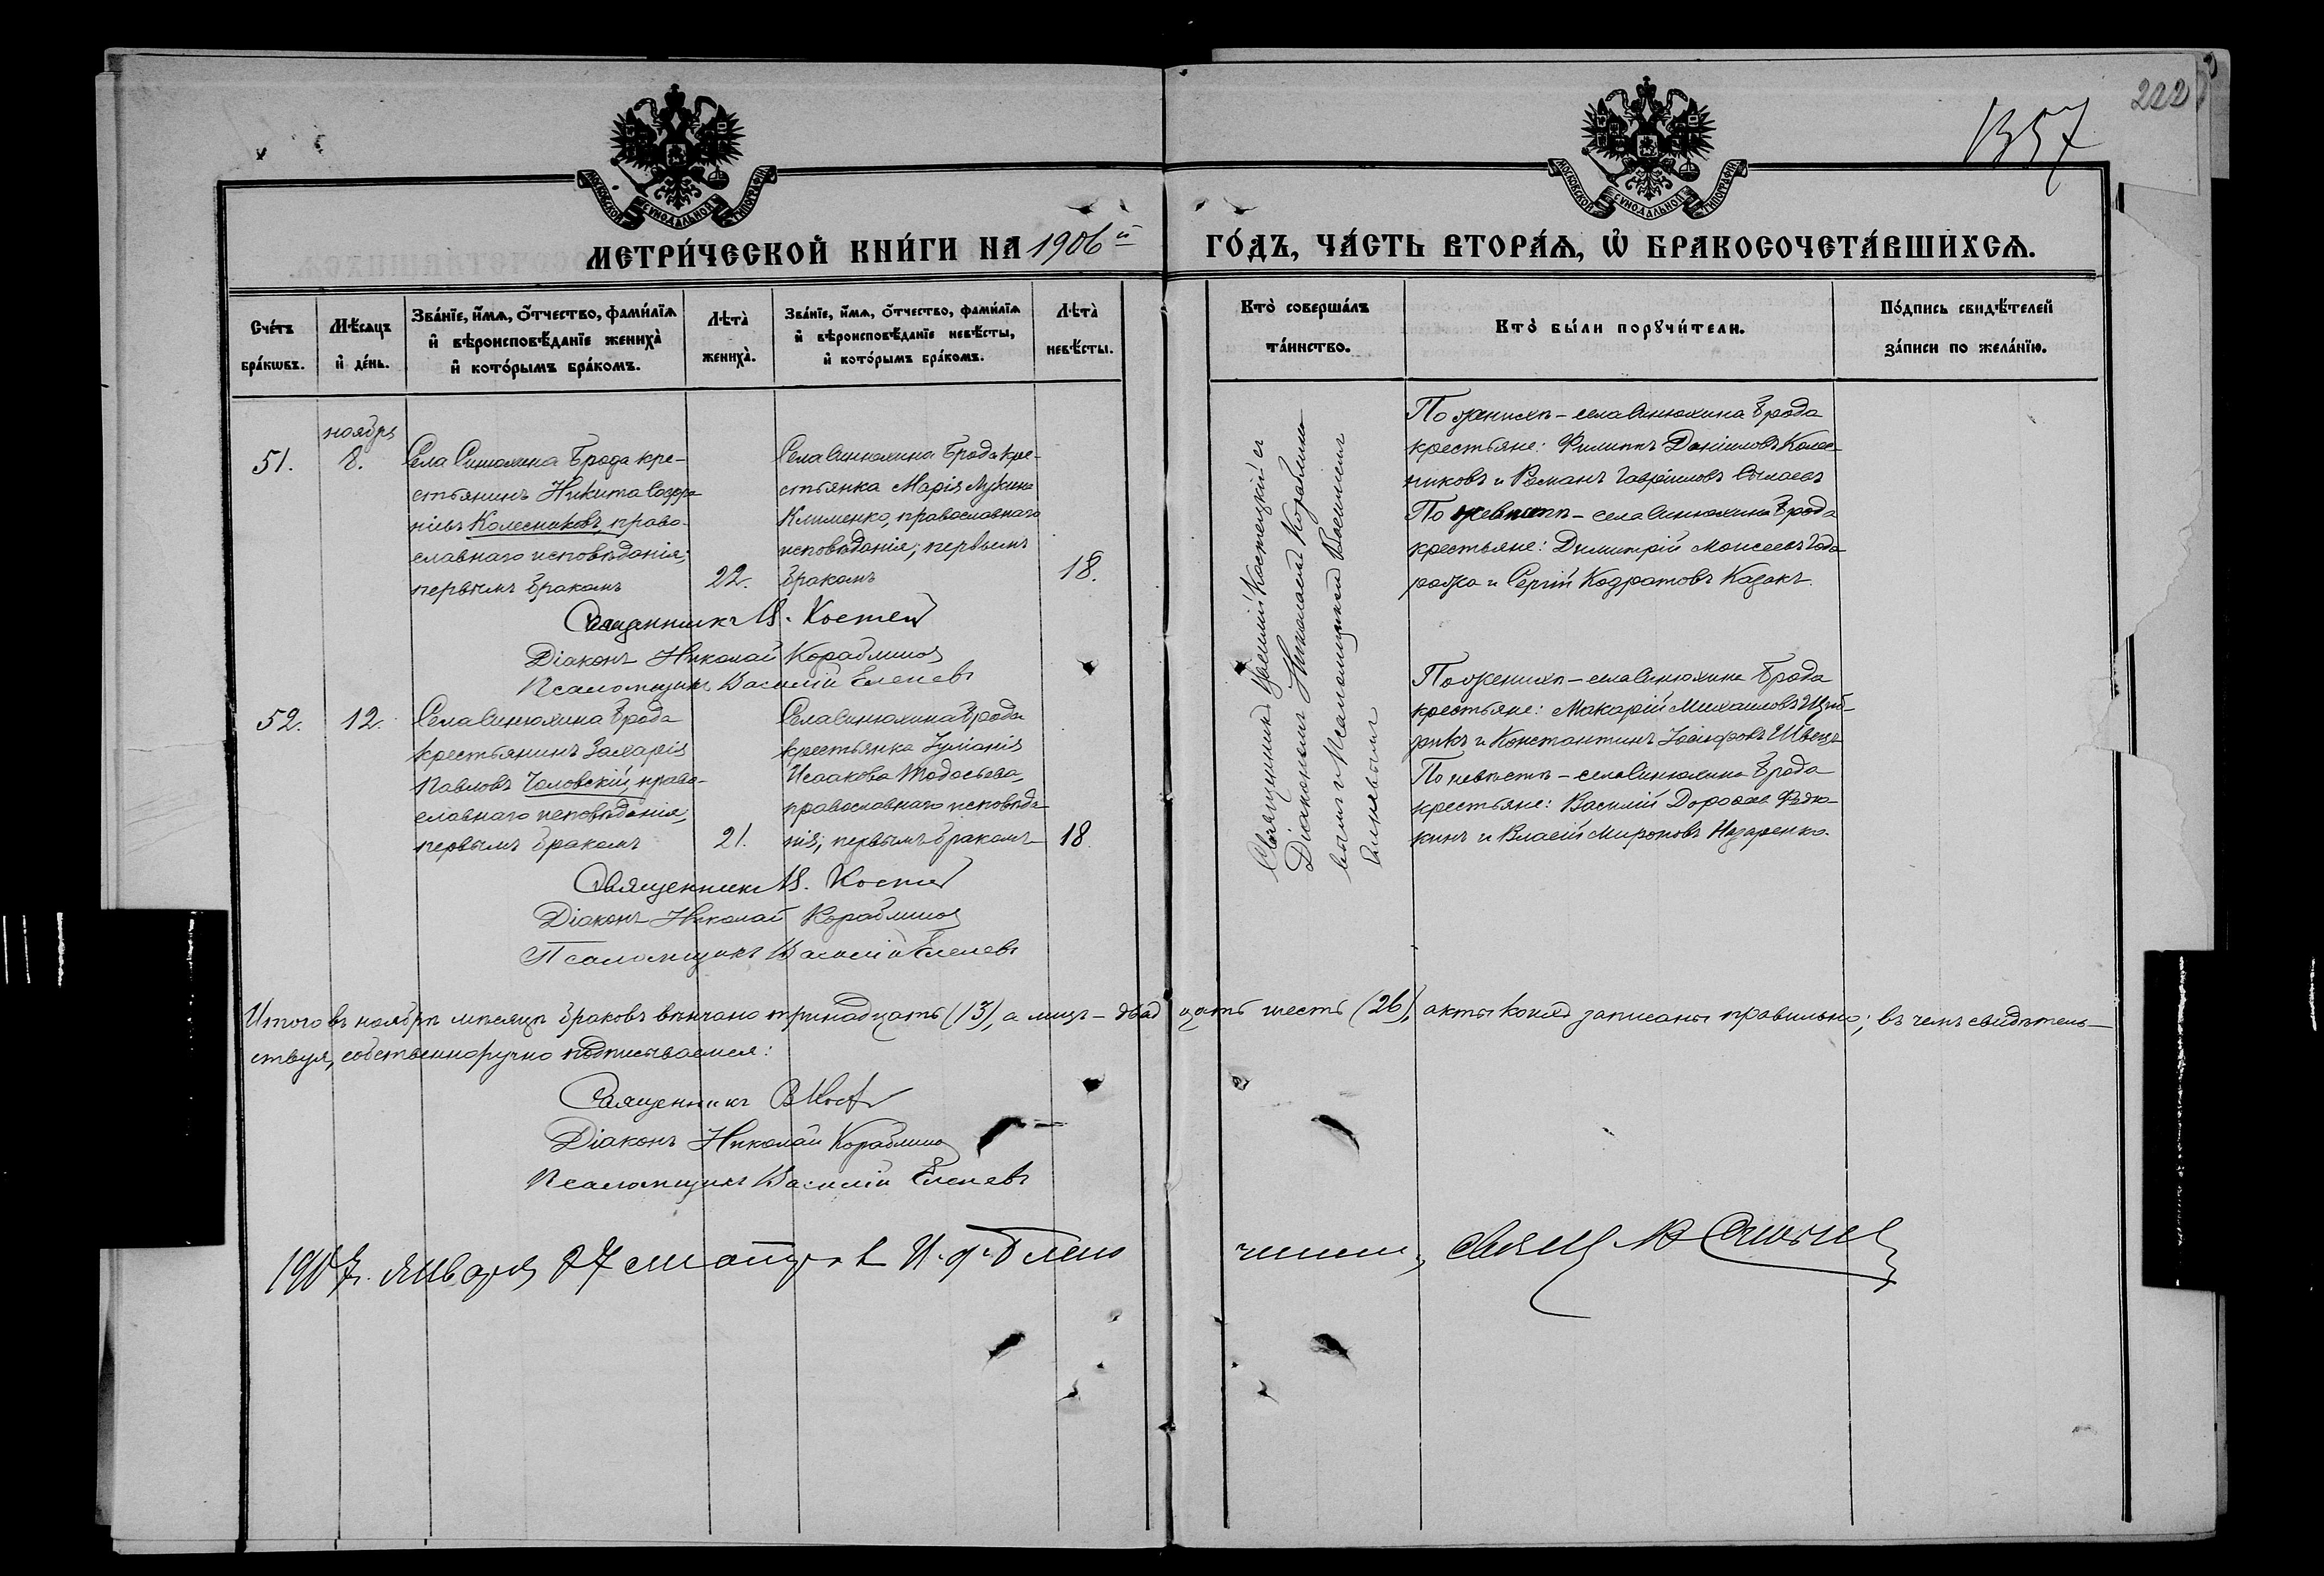 222
1357
МОСКОВСКОЙ СѴНОДАЛЬНОЙ ТИПОГРАФІИ
МОСКОВСКОЙ СѴНОДАЛЬНОЙ ТИПОГРАФІИ
МЕТРИ́ЧЕСКОЙ КНИ́ГИ НА 1906й ГО́ДЪ, ЧА́СТЬ ВТОРА́Ѧ, Ѡ҆ БРАКОСОЧЕТА́ВШИХСѦ.
Сче́тъ бра́кѡвъ.
Мѣ́сѧцъ и҆ де́нь.
Зва́нїе, и҆́мѧ, ѻ҆́тчество, фами́лїѧ
и҆ вѣроисповѣ́данїе жениха̀
и҆ кото́рымъ бра́комъ.
Лѣта̀ жениха̀.
Зва́нїе, и҆́мѧ, ѻ҆́тчество, фами́лїѧ
и҆ вѣроисповѣ́данїе невѣ́сты,
и҆ кото́рымъ бра́комъ.
Лѣта̀ невѣ́сты.
Кто̀ соверша́лъ
та́инство.
Кто̀ бы́ли порꙋчи́тели.
По́дпись свидѣ́телей
за́писи по жела́нїю.
51.
ноября
8.
Села Синюхина Брода кре-
стьянинъ Никита Софро-
ніевъ Колесниковъ, право-
славнаго исповѣданія;
первымъ бракомъ
22.
Села Синюхина Брода кре-
стьянка Марія Лукина
Клименко, православнаго
исповѣданія; первымъ
бракомъ
18.
Священникъ Василій
Діакономъ Николаемъ Кораблино-
вымъ и Псаломщикомъ Василіемъ
По женихѣ – села Синюхина Брода
крестьяне: Филиппъ Даніиловъ Колес-
никовъ и Романъ Гавріиловъ
По невѣстѣ – села Синюхина Брода
крестьяне: Димитрій Моисеевъ
и Сергій Кодратовъ Казакъ.
Священникъ В.
Діаконъ Николай Кораблинов
Псаломщикъ Василій Еленевъ
52.
12.
Села Синюхина Брода
крестьянинъ Захарія
Павловъ Чоловскій, право-
славнаго исповѣданія;
первымъ бракомъ
21.
Села Синюхина Брода
крестьянка Іуліанія
Исаакова Тодосьева,
православнаго исповѣда-
нія; первымъ бракомъ
18
По женихѣ – села Синюхина Брода
крестьяне: Макарій Михаиловъ
и Константинъ Іосифовъ Швецъ
По невѣстѣ – села Синюхина Брода
крестьяне: Василій
и Власій Мироновъ Назаренко.
Священникъ В.
Діаконъ Николай Кораблинов
Псаломщикъ Василій Еленевъ
Итого въ ноябрѣ мѣсяцѣ браковъ вѣнчано тринадцать (13), а лицъ – двадцать шесть (26), акты коихъ записаны правильно; въ чемъ свидѣтель-
ствуя, собственноручно подписываемся:
Священникъ В
Діаконъ Николай Кораблинов
Псаломщикъ Василій Еленевъ
1907 г. января 27 смотрѣлъ И. д. Благочиннаго, Свящ.